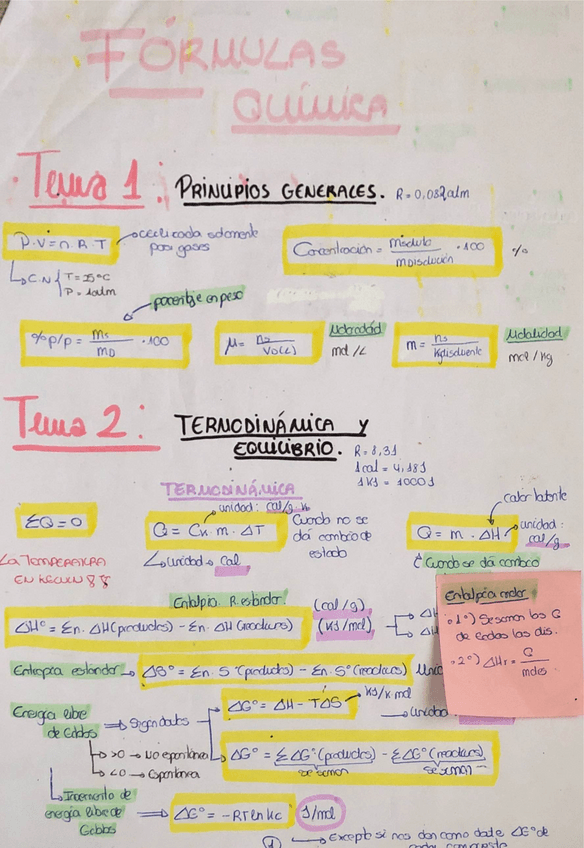 FÓRMULAS
QUÍMICA
Tema 1: PRINCIPIOS GENERALES. R = 0,082 atm
P·V = n·R·T
gases
C.N { T = 25°C
P = 1 atm
Concentración = msoluto / mDisolución · 100 %
porcentaje en peso
% p/p = ms / mD · 100
M = ns / VD(L)
Molaridad
mol/L
m = ns / Kg disolvente
Molalidad
mol/Kg
Tema 2: TERMODINÁMICA Y
EQUILIBRIO.
R = 8,31
1 cal = 4,18 J
1 KJ = 1000 J
TERMODINÁMICA
ΣQ = 0
unidad: cal/g·K
Q = Ce·m·ΔT
Cuando no se
dá cambio de
estado
unidad → Cal
calor latente
Q = m·ΔH
unidad:
cal/g
Cuando se dá cambio
LA TEMPERATURA
EN KELVIN
Entalpía R. estándar:
(cal/g)
(KJ/mol)
ΔH° = Σn·ΔH(productos) − Σn·ΔH(reactivos)
Entalpía molar
1°) Se suman los Q
de todas las dis.
2°) ΔHr = Q / moles
Entropía estándar → ΔS° = Σn·S°(productos) − Σn·S°(reactivos)
Energía libre
de Gibbs ⇒ Según datos
ΔG° = ΔH − TΔS
KJ/K mol
unidad
>0 → No espontánea
<0 → Espontánea
ΔG° = ΣΔG°(productos) − ΣΔG°(reactivos)
se suman se suman
Incremento de
energía libre de
Gibbs
⇒ ΔG° = −RT ln Kc
J/mol
① → Excepto si nos dan como dato ΔG° de
cada compuesto